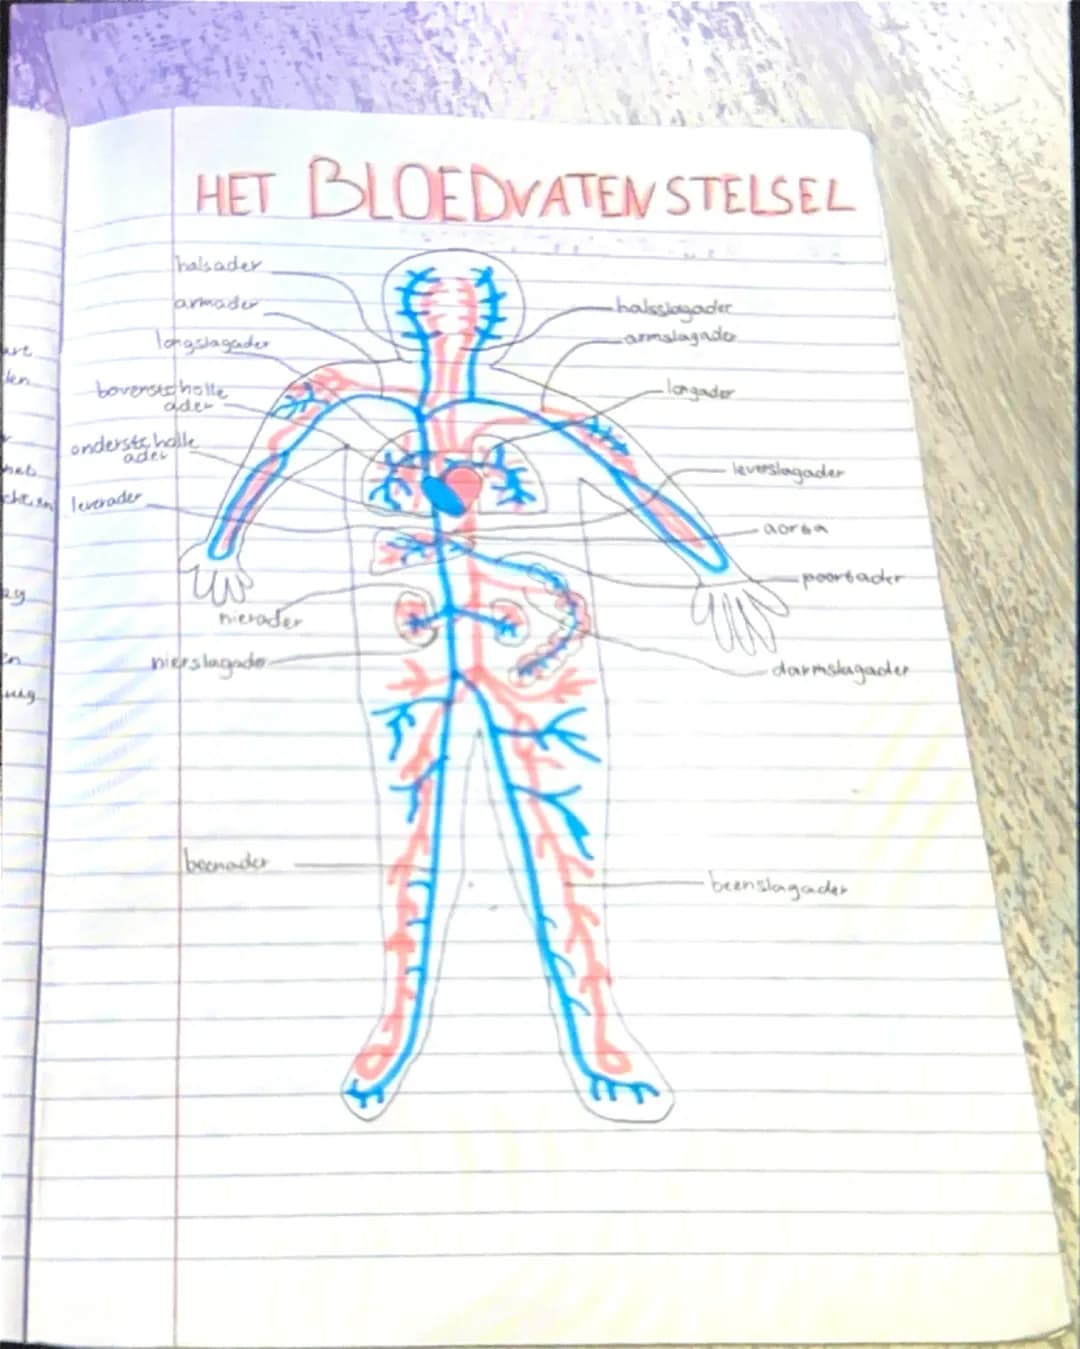 HET BLOEDVATENSTELSEL
halsader
armader
longslagader
bovenste holle
ader
onderste holle
ader
leverader
nierader
nierslagader
beenader
halsslagader
armslagader
longader
leverslagader
aorta
poortader
darmslagader
beenslagader